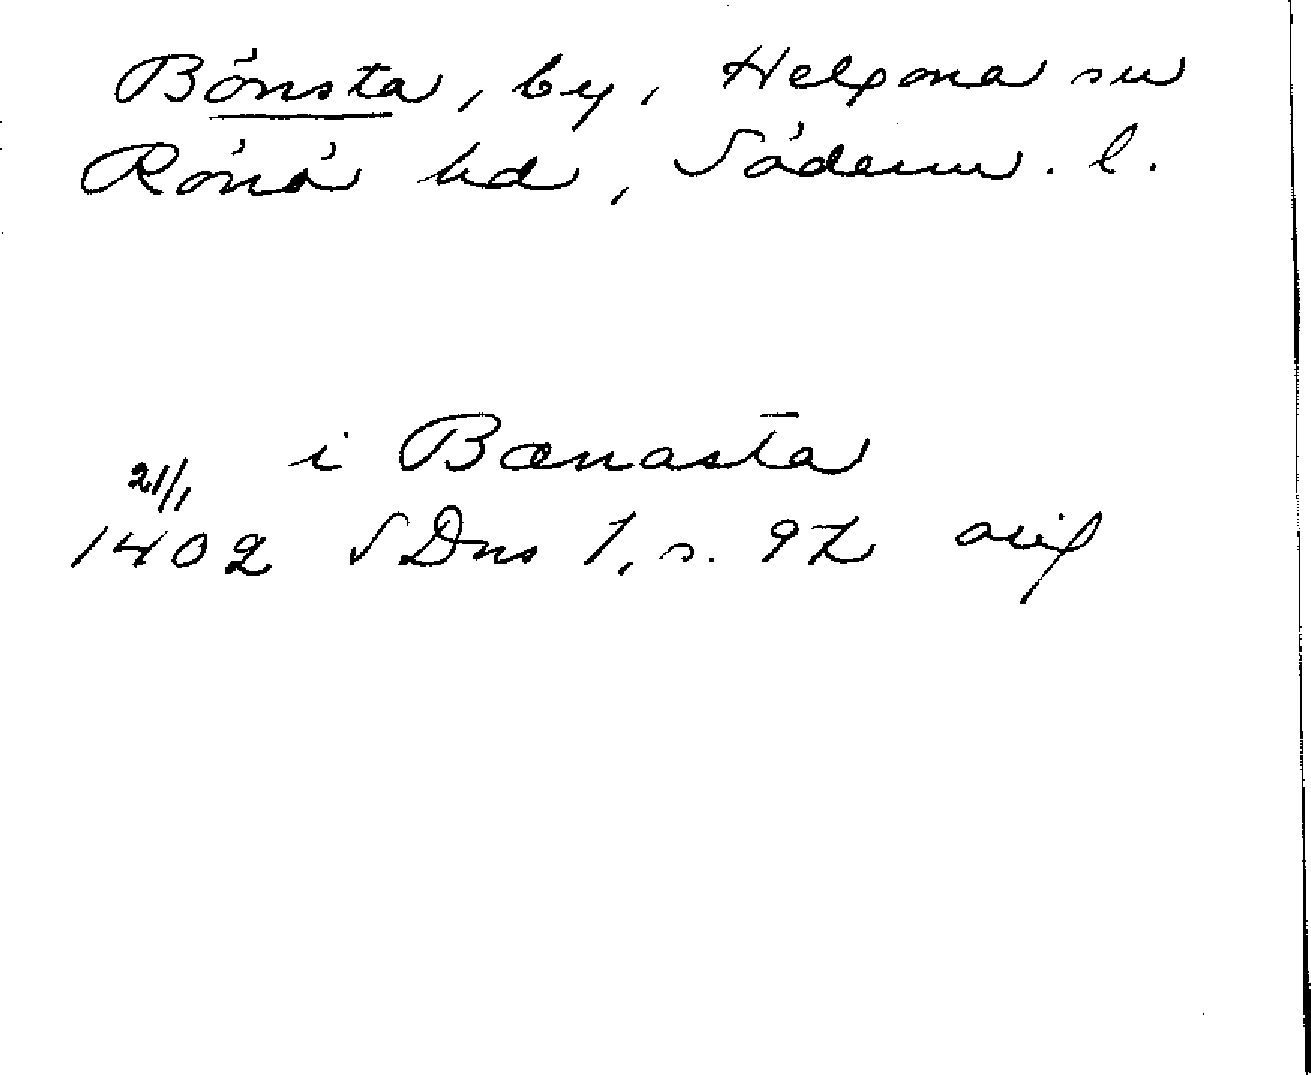 Bönsta, by, Helgona sn
Rönö hd, Söderm. l.
i Bœnasta̅
21/1
1402 SDns 1, s. 97 orig